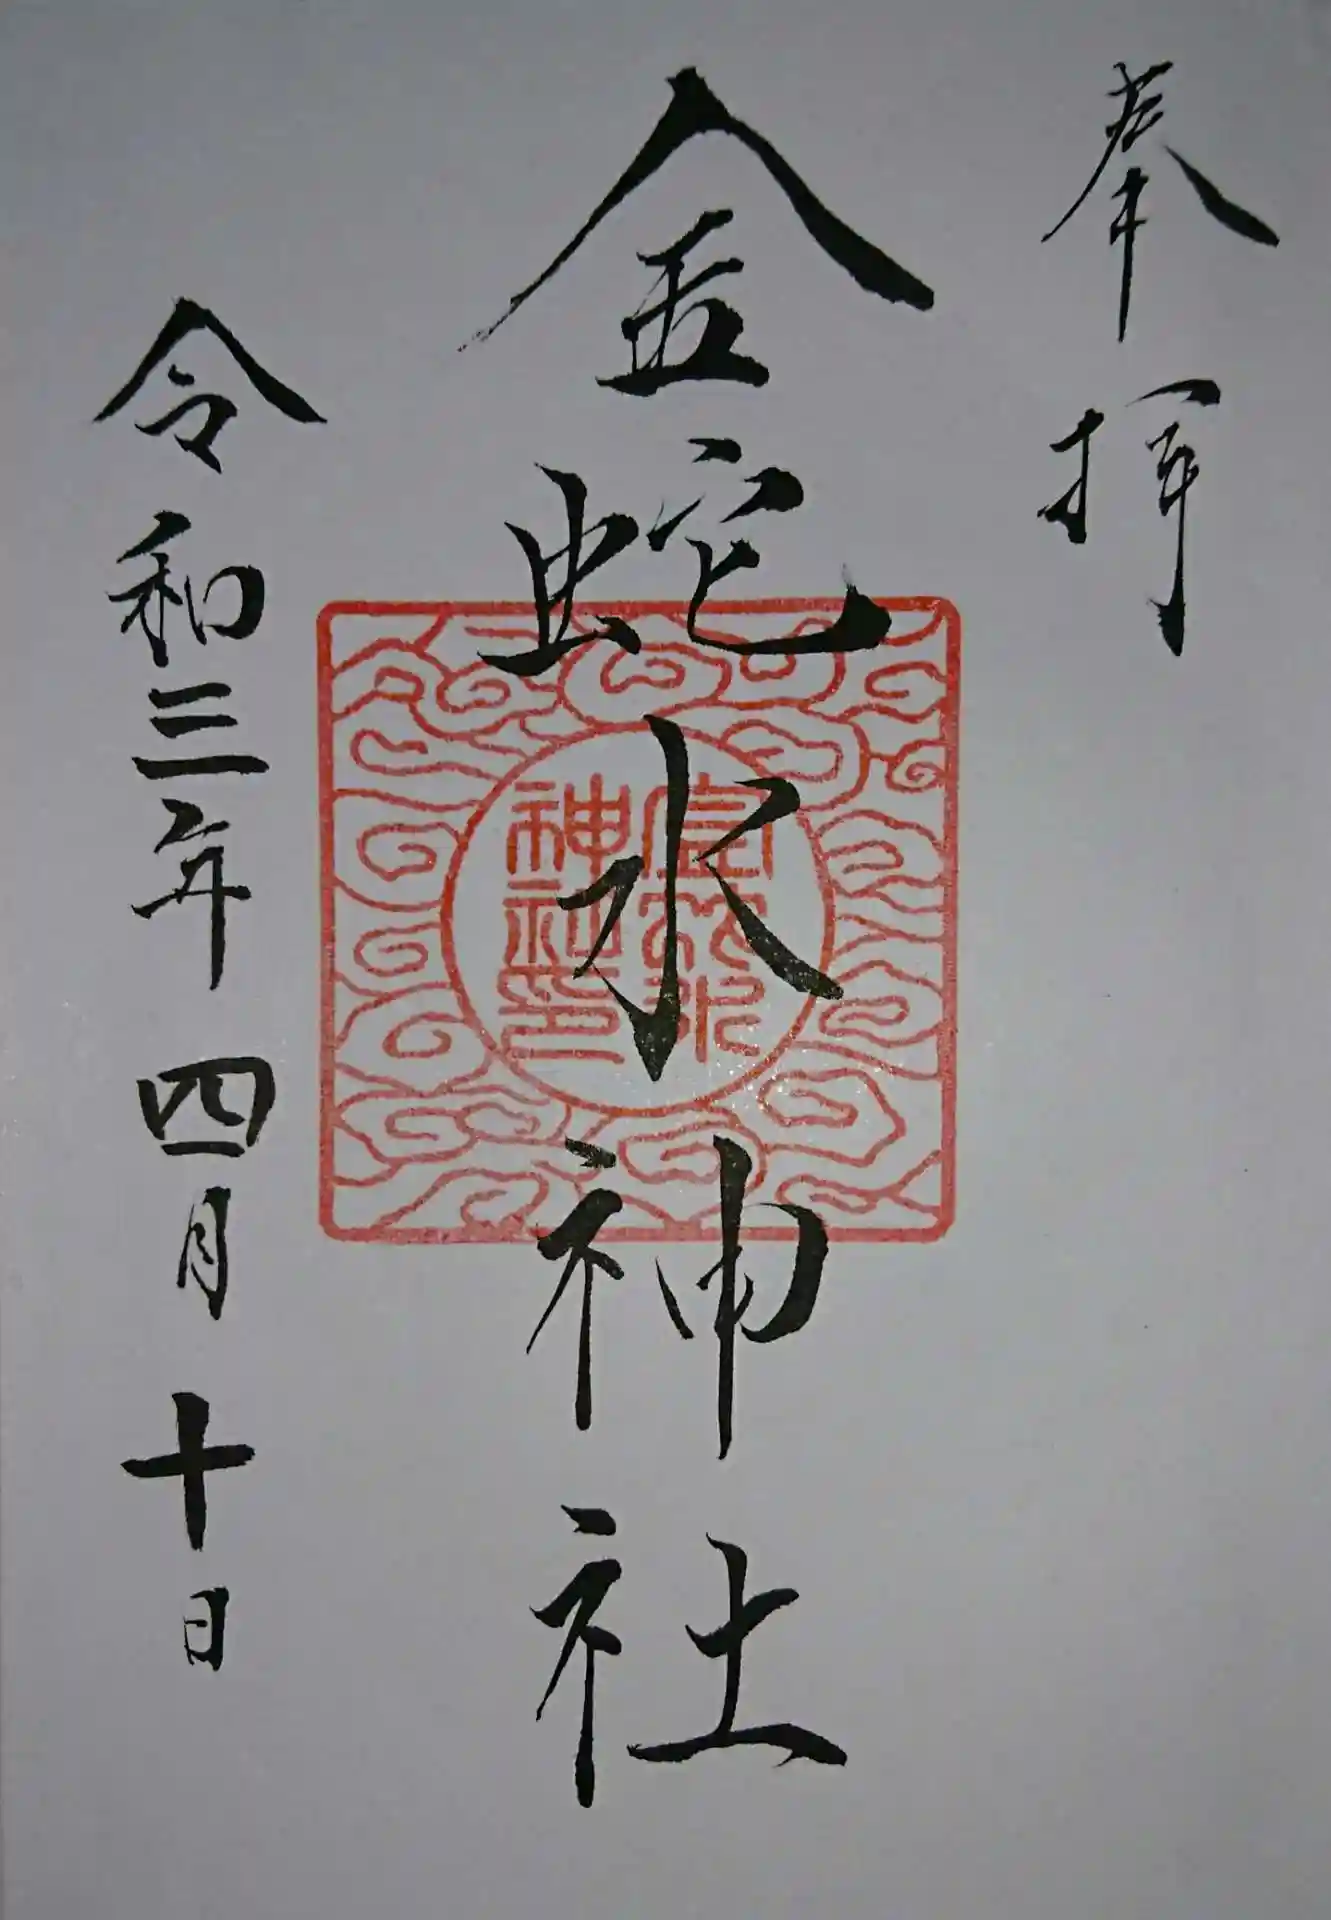 奉拝
金蛇水神社
金蛇水
神社印
令和三年 四月 十日